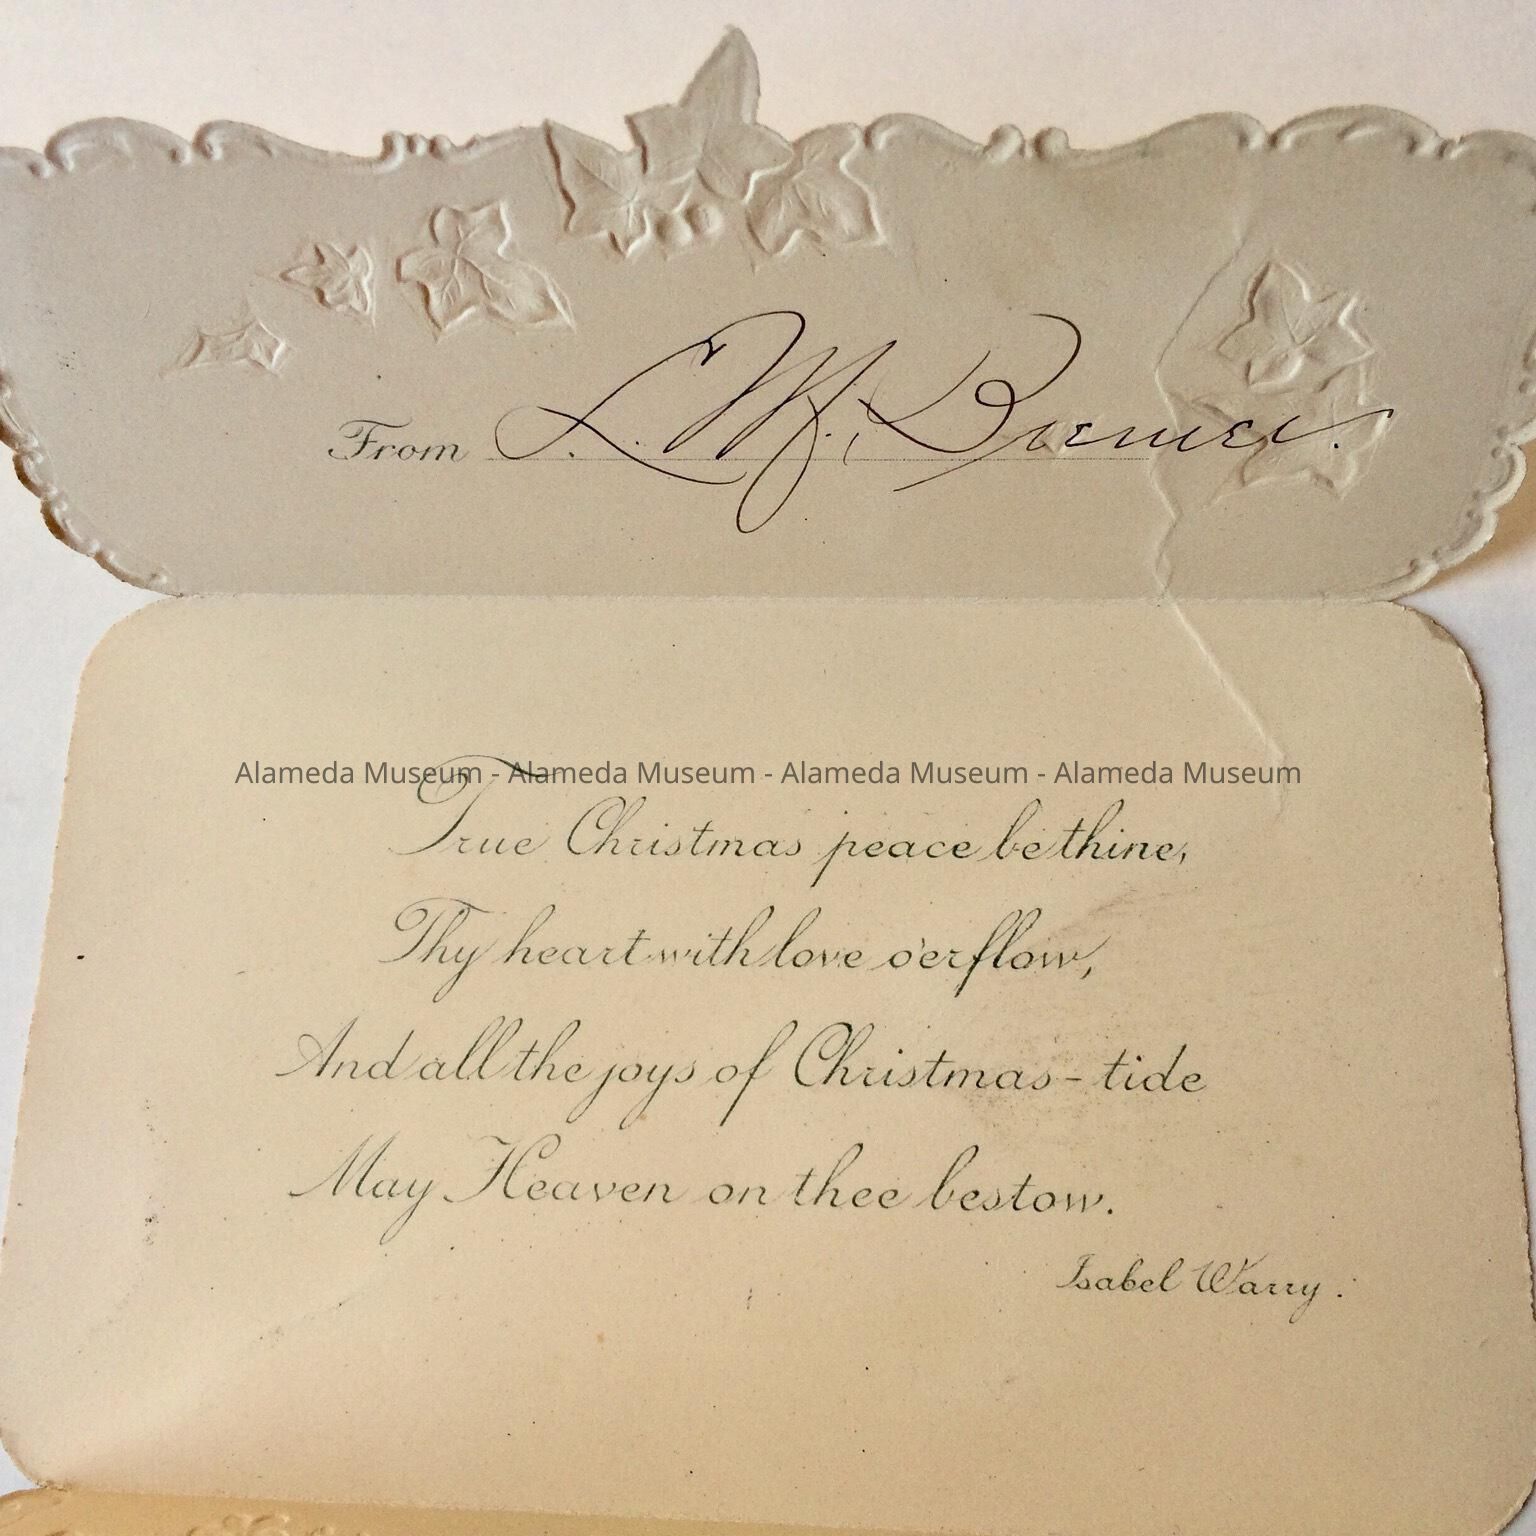 From L. M. Brewer.
Alameda Museum - Alameda Museum - Alameda Museum - Alameda Museum
True Christmas peace be thine,
Thy heart with love o'erflow,
And all the joys of Christmas-tide
May Heaven on thee bestow.
Isabel Warry.